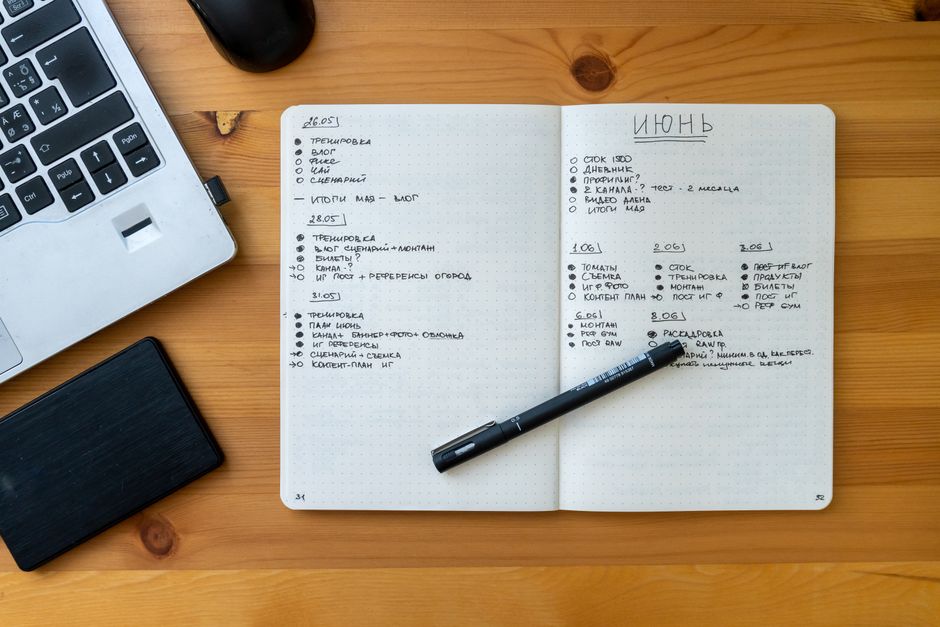 26.05
ТРЕНИРОВКА
ВЛОГ
ФИКС
ЧАЙ
СЦЕНАРИЙ
— ИТОГИ МАЯ — ВЛОГ
28.05
ТРЕНИРОВКА
ВЛОГ СЦЕНАРИЙ + МОНТАЖ
БИЛЕТЫ?
КАНАЛ - ?
ИГ ПОСТ + РЕФЕРЕНСЫ ОГОРОД
31.05
ТРЕНИРОВКА
ПЛАН ИЮНЬ
КАНАЛ + БАННЕР + ФОТО + ОБЛОЖКА
ИГ РЕФЕРЕНСЫ
СЦЕНАРИЙ + СЪЕМКА
КОНТЕНТ-ПЛАН ИГ
31
ИЮНЬ
СТОК 1500
ДНЕВНИК
ПРОФИЛЬ ИГ?
2 КАНАЛА - ? ТЕСТ - 2 МЕСЯЦА
ВИДЕО АЛЕНА
ИТОГИ МАЯ
1.06
ТОМАТЫ
СЪЕМКА
ИГ Ф. ФОТО
КОНТЕНТ ПЛАН
2.06
СТОК
ТРЕНИРОВКА
МОНТАЖ
ПОСТ ИГ Ф
3.06
ПОСТ ИГ ВЛОГ
ПРОДУКТЫ
БИЛЕТЫ
ПОСТ ИГ
РЕФ GYM
6.06
МОНТАЖ
РЕФ GYM
ПОСТ RAW
8.06
РАСКАДРОВКА
RAW ПР.
? МИНИМ. В ОД. КАК ПЕРЕСТ.
ненужные вещи
32
PgDn
PgUp
Ctrl
0.8